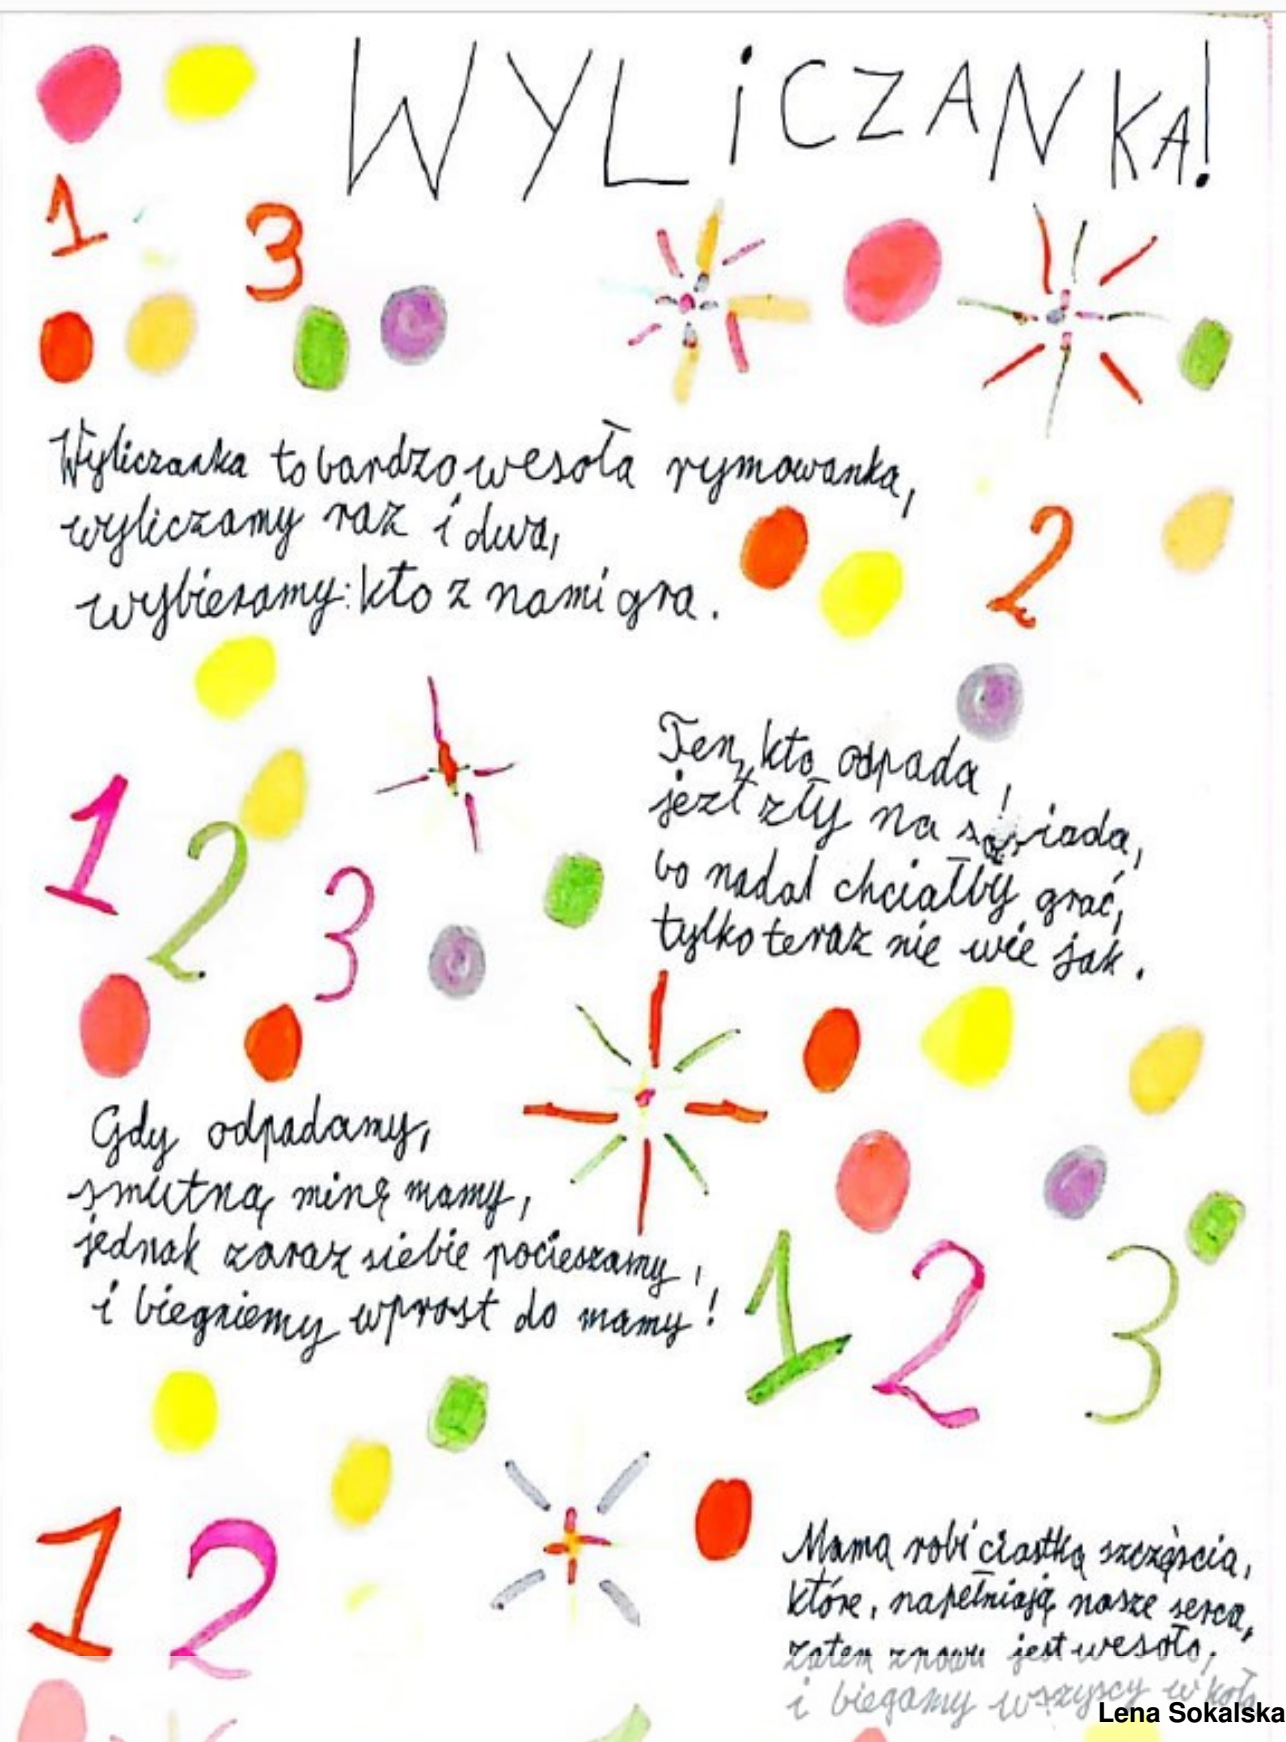 WYLiCZANKA!
1 3
Wyliczanka to bardzo wesoła rymowanka,
wyliczamy raz i dwa,
wybieramy: kto z nami gra.
2
Ten, kto odpada,
jezt zły na sąsiada,
bo nadal chciałby grać,
tylko teraz nie wie jak.
1 2 3
Gdy odpadamy,
smutną minę mamy,
jednak zaraz siebie pocieszamy,
i biegniemy wprost do mamy!
1 2 3
1 2
Mama robi ciastka szczęścia,
które, napełniają nasze serca,
zatem znowu jest wesoło,
i biegamy wszyscy w koło
Lena Sokalska